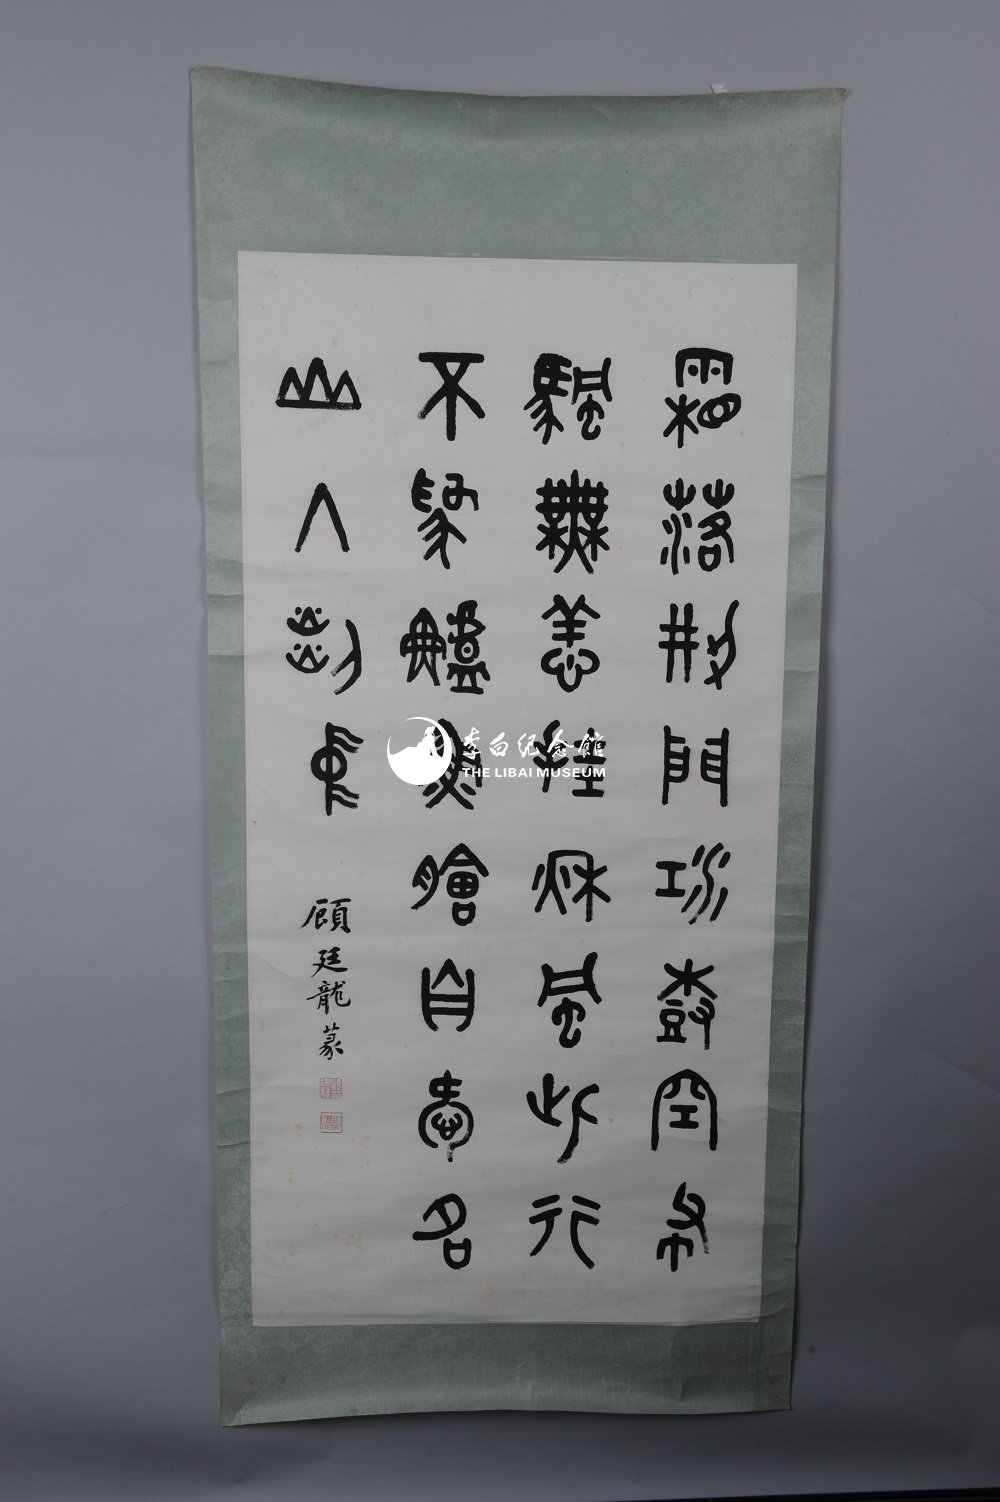 霜落荆門江樹空布
颿無恙挂秋風此行
不爲鱸魚鱠自愛名
山入剡中
顧廷龍篆
李白纪念館
THE LIBAI MUSEUM